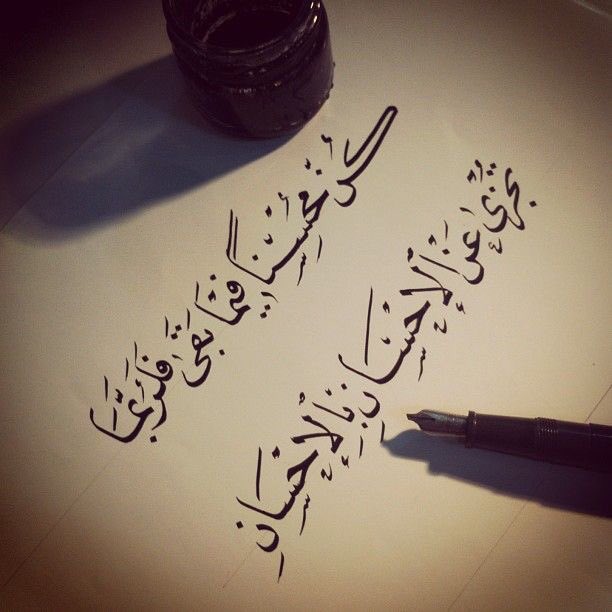 كُنْ مُحْسِنًا فِيمَا بَقَى فَلَرُبَّمَا
تُجْزَى عَنِ الْإِحْسَانِ بِالْإِحْسَانِ